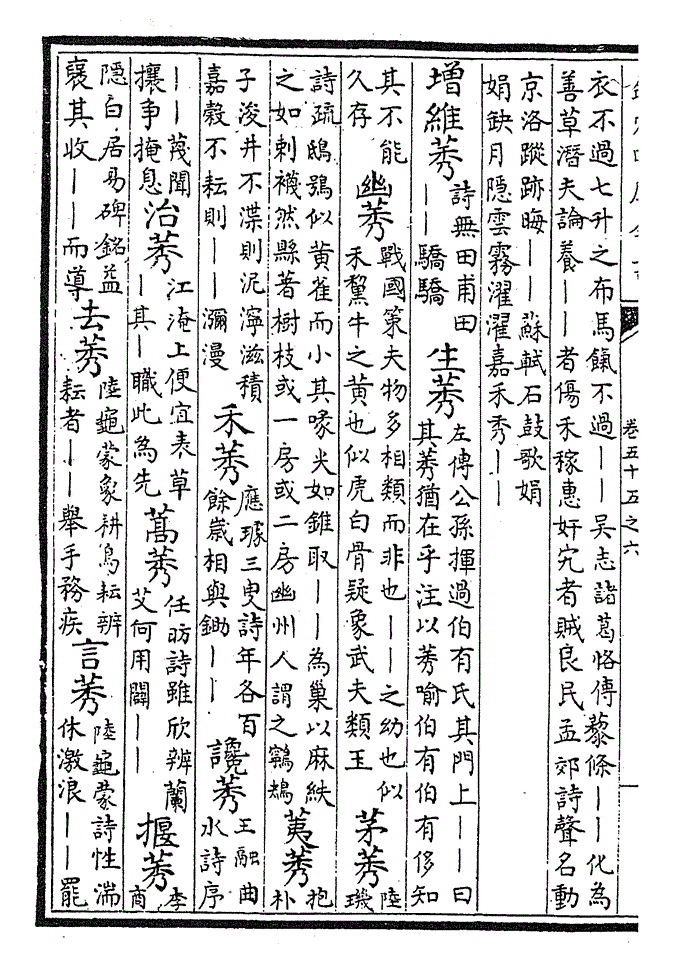 卷五十五之六
衣不過七升之布馬餼不過——吳志諸葛恪傳藜條——化為
善草潛夫論養——者傷禾稼惠奸宄者賊良民孟郊詩聲名動
京洛蹤跡晦——蘇軾石鼓歌娟
娟缺月隱雲霧濯濯嘉禾秀——
增維莠 詩無田甫田——驕驕 生莠 左傳公孫揮過伯有氏其門上——曰其莠猶在乎注以莠喻伯有伯有侈知
其不能久存 幽莠 戰國策夫物多相類而非也——之幼也似禾黧牛之黃也似虎白骨疑象武夫類玉 茅莠 陸璣
詩疏鴟鴞似黃雀而小其喙尖如錐取——為巢以麻紩之如刺襪然縣著樹枝或一房或二房幽州人謂之鸋鴂 荑莠 抱朴
子浚井不渫則泥濘滋積嘉穀不耘則——瀰漫 禾莠 應璩三叟詩年各百餘歲相與鋤—— 讒莠 王融曲水詩序
——蔑聞攘爭掩息 治莠 江淹上便宜表草—其—職此為先 蒿莠 任昉詩雖欣辨蘭艾何用闢—— 揠莠 李商
隱白居易碑銘益裒其收——而導 去莠 陸龜蒙象耕鳥耘辨耘者——舉手務疾 言莠 陸龜蒙詩性湍休激浪——罷